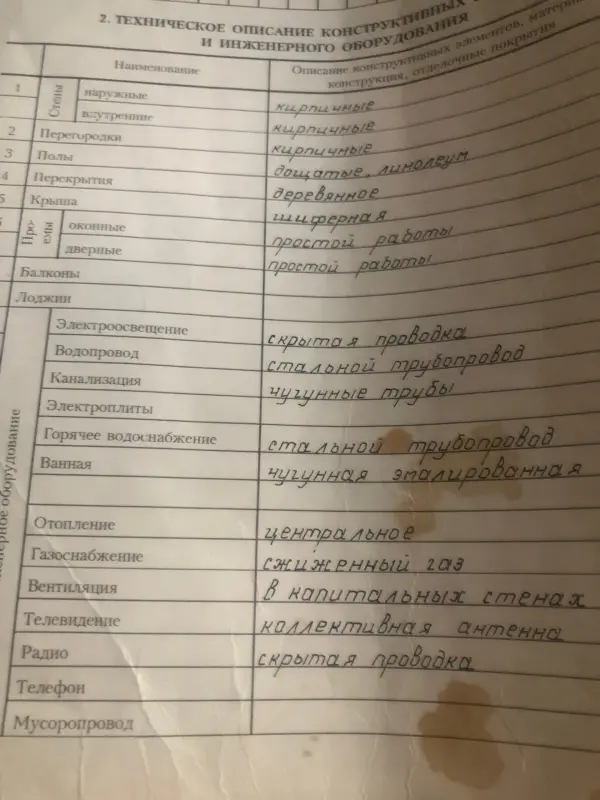 2. ТЕХНИЧЕСКОЕ ОПИСАНИЕ КОНСТРУКТИВНЫХ
И ИНЖЕНЕРНОГО ОБОРУДОВАНИЯ
Наименование
Описание конструктивных элементов,
конструкция, отделочные покрытия
1 Стены наружные кирпичные
внутренние кирпичные
2 Перегородки кирпичные
3 Полы дощатые, линолеум
4 Перекрытия деревянное
5 Крыша шиферная
6 Проемы оконные простой работы
дверные простой работы
Балконы
Лоджии
Электроосвещение скрытая проводка
Водопровод стальной трубопровод
Канализация чугунные трубы
Электроплиты
Горячее водоснабжение стальной трубопровод
Ванная чугунная эмалированная
Отопление центральное
Газоснабжение сжиженный газ
Вентиляция в капитальных стенах
Телевидение коллективная антенна
Радио скрытая проводка
Телефон
Мусоропровод
оборудование